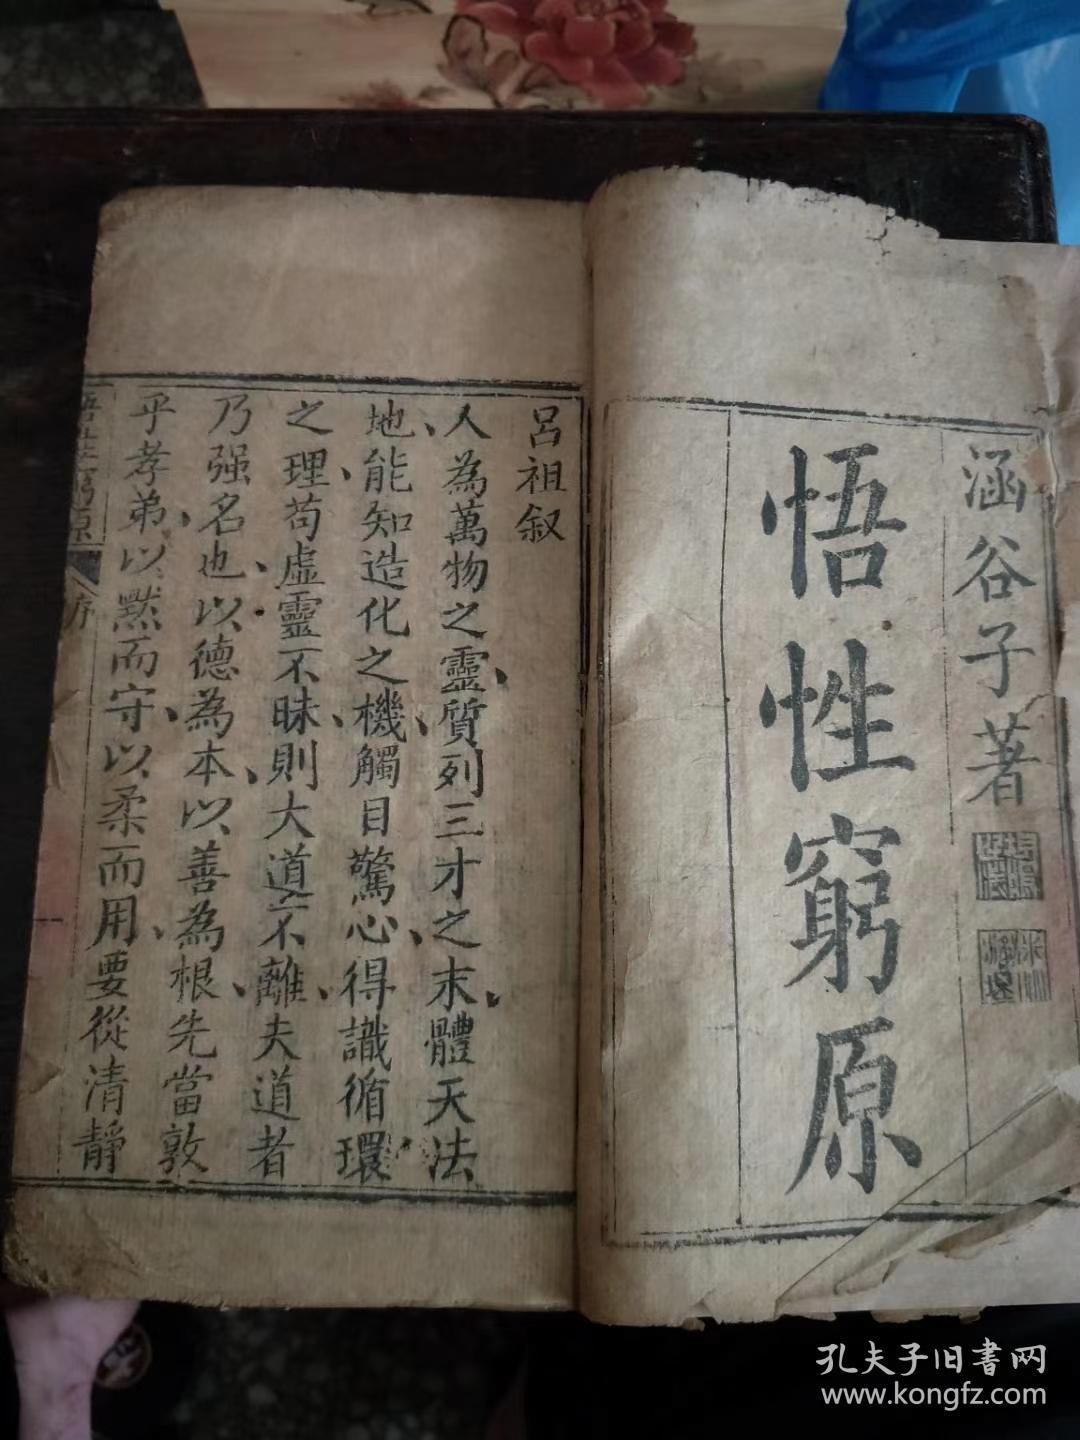 涵谷子著
悟性窮原
呂祖叙
人為萬物之靈質列三才之末體天法
地能知造化之機觸目驚心得識循環
之理苟虛靈不昧則大道不離夫道者
乃强名也以德為本以善為根先當敦
乎孝弟以黙而守以柔而用要從清靜
悟性窮原 序
孔夫子旧書网
www.kongfz.com